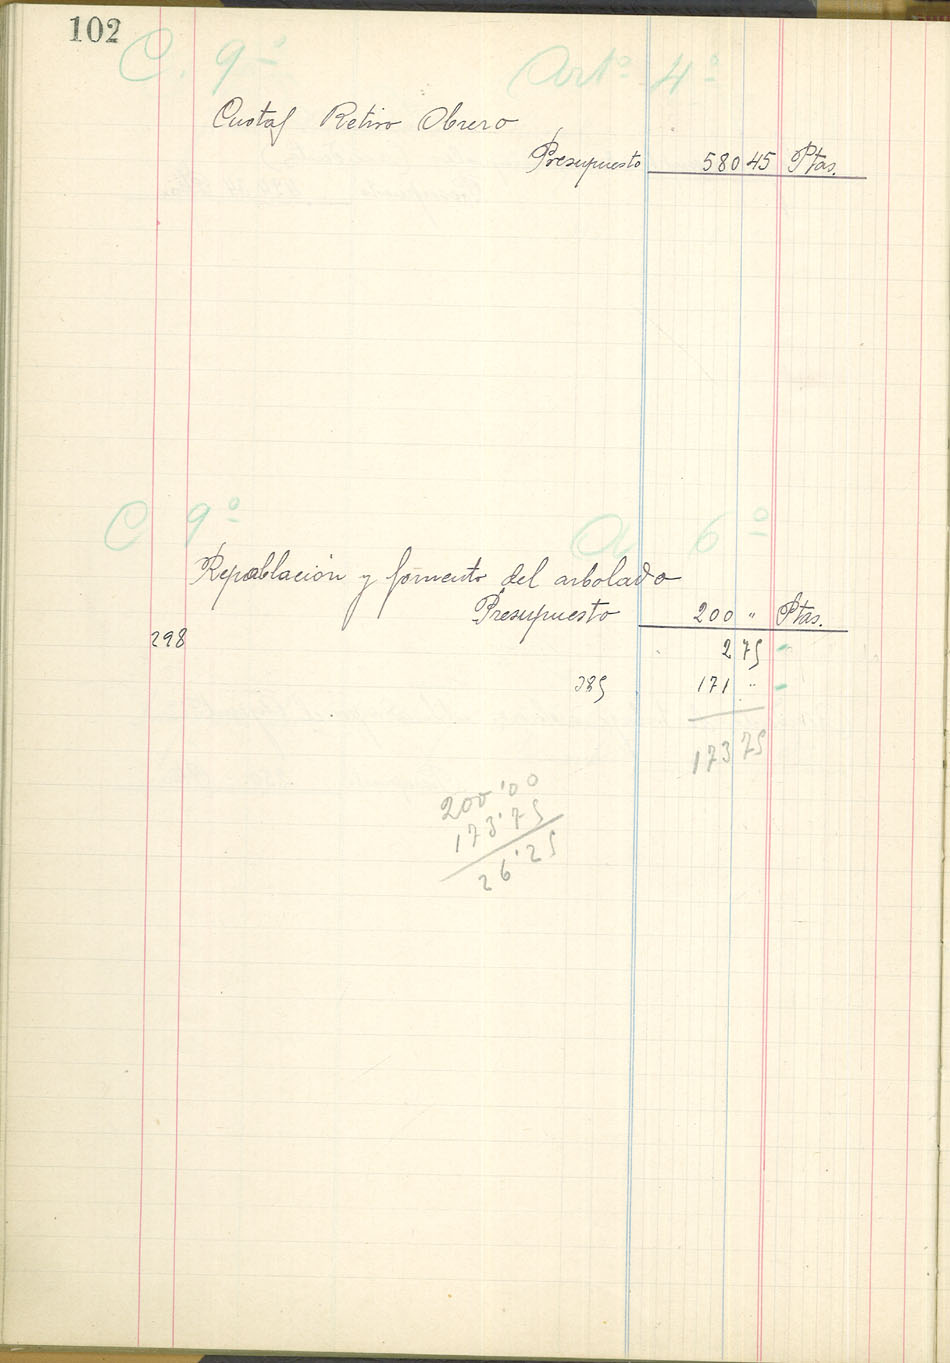 102
C. 9º Artº 4º
Cuotas Retiro Obrero
Presupuesto 580 45 Ptas.
C 9º A 6º
Repoblación y fomento del arbolado
Presupuesto 200 " Ptas.
298 2 75 -
385 171 " -
173 75
200'00
173'75
26'25